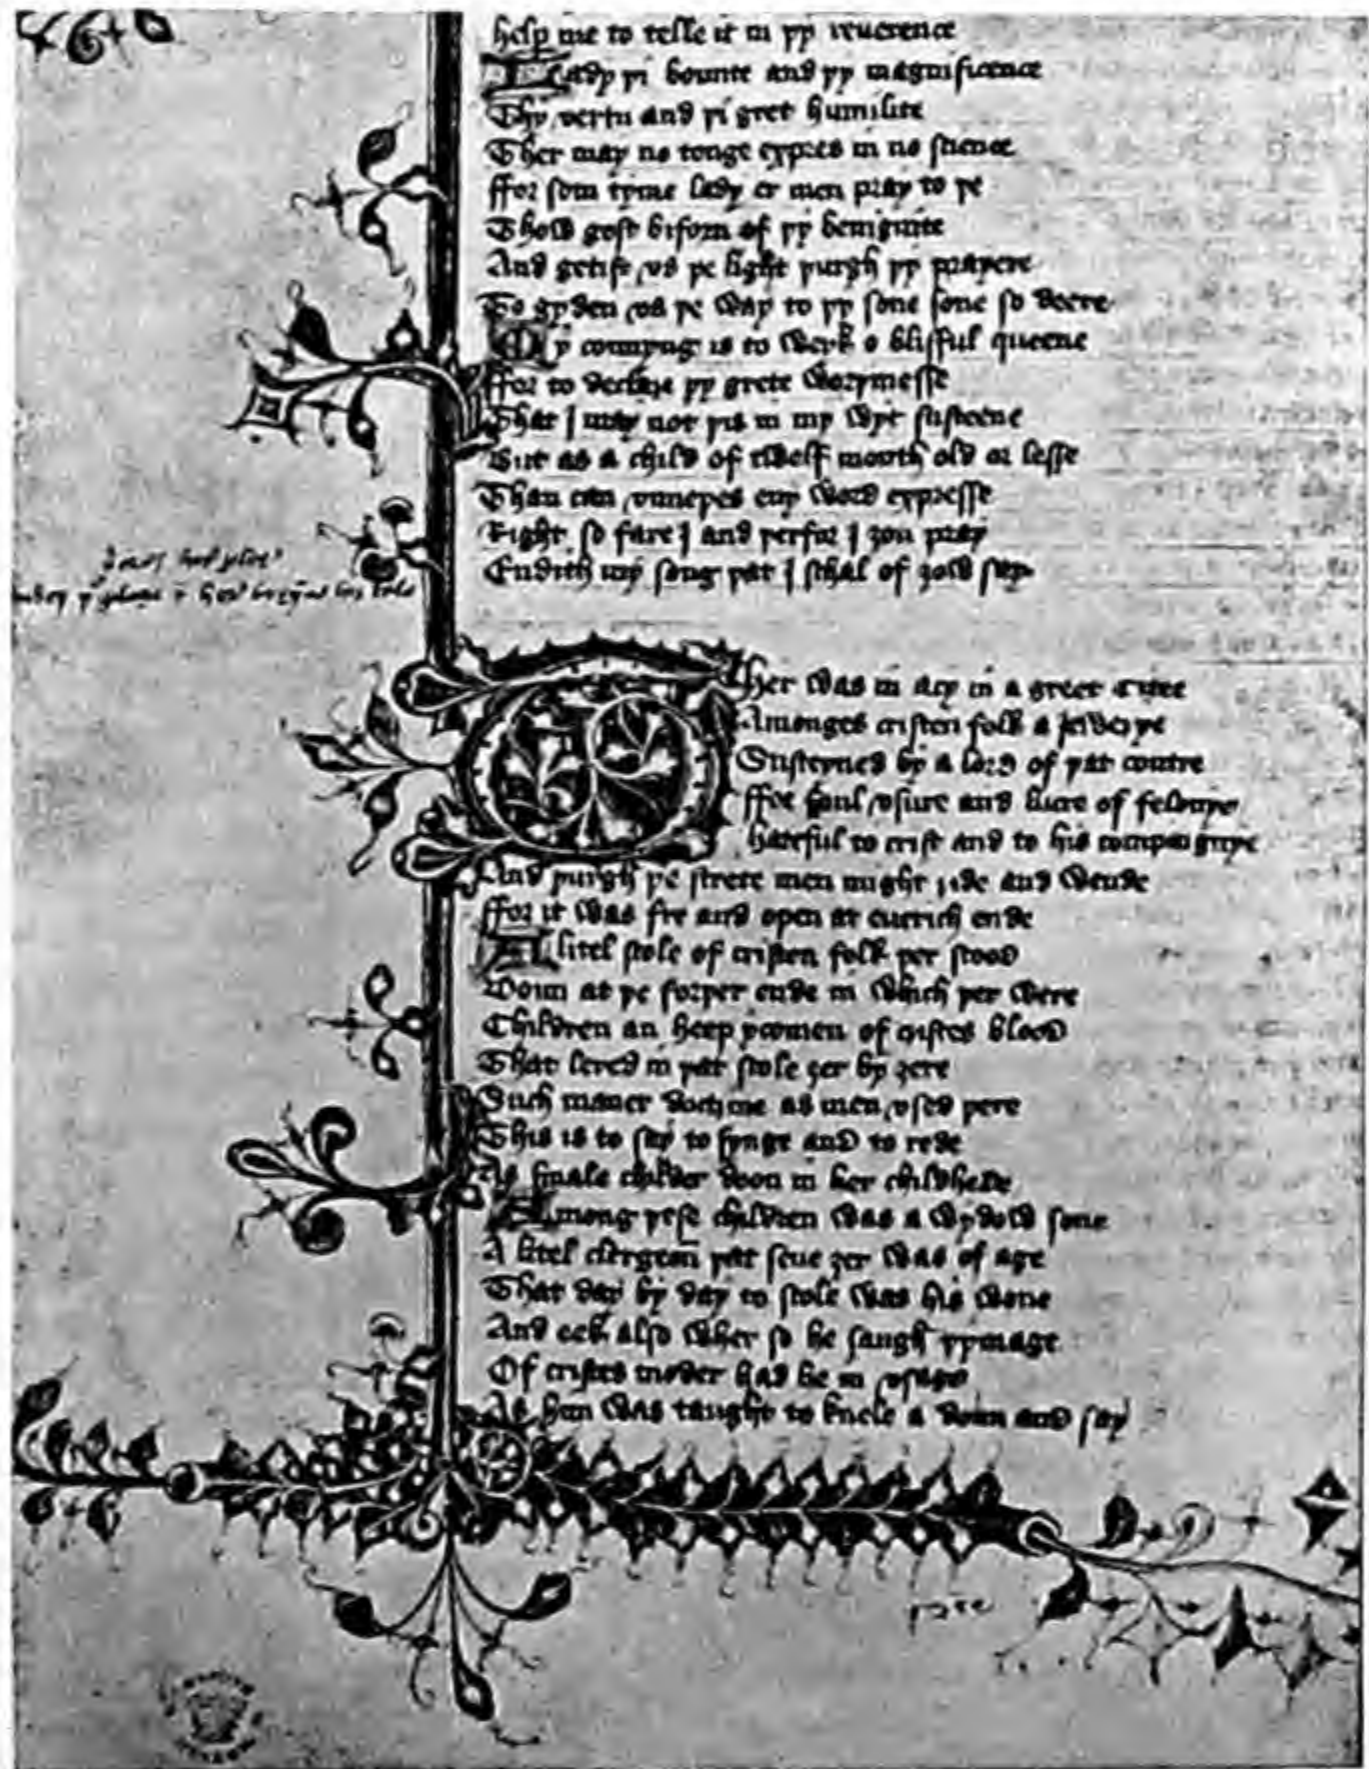 help me to telle it in þy reuerence
Lady þi bounte and þy magnificence
Thy vertu and þi gret humilite
Ther may no tonge expres in no science
ffor som tyme lady er men pray to þe
Thow gost biforn of þy benignite
And getist vs þe light þurgh þy prayere
To gyden vs þe way to þy sone sone so deere
My connyng is to werk o blisful queene
ffor to declare þy grete worþinesse
That I may not þis in my wyt susteene
But as a child of twelf month old or lesse
Than can vnneþes eny word expresse
Right so fare I and þerfor I ȝou pray
Endith my song þat I schal of ȝow say
Ther was in acy in a greet citee
Amonges cristen folk a jewerye
Susteyned by a lord of þat contre
ffor foul vsure and lucre of felonye
hateful to crist and to his compaignye
And þurgh þe strete men might ride and wende
ffor it was fre and open at euerich ende
A litel scole of cristen folk þer stood
Doun at þe forþer ende in which þer were
Children an heep ycomen of cristes blood
That lered in þat scole ȝer by ȝere
Such maner doctrine as men vsed þere
This is to say to synge and to rede
As smale childer doon in her childhede
Among þese children was a wydow sone
A litel clergeoun þat seue ȝer was of age
That day by day to scole was his wone
And eek also wher so he saugh þymage
Of cristes moder had he in vsage
As him was taught to knele a doun and say